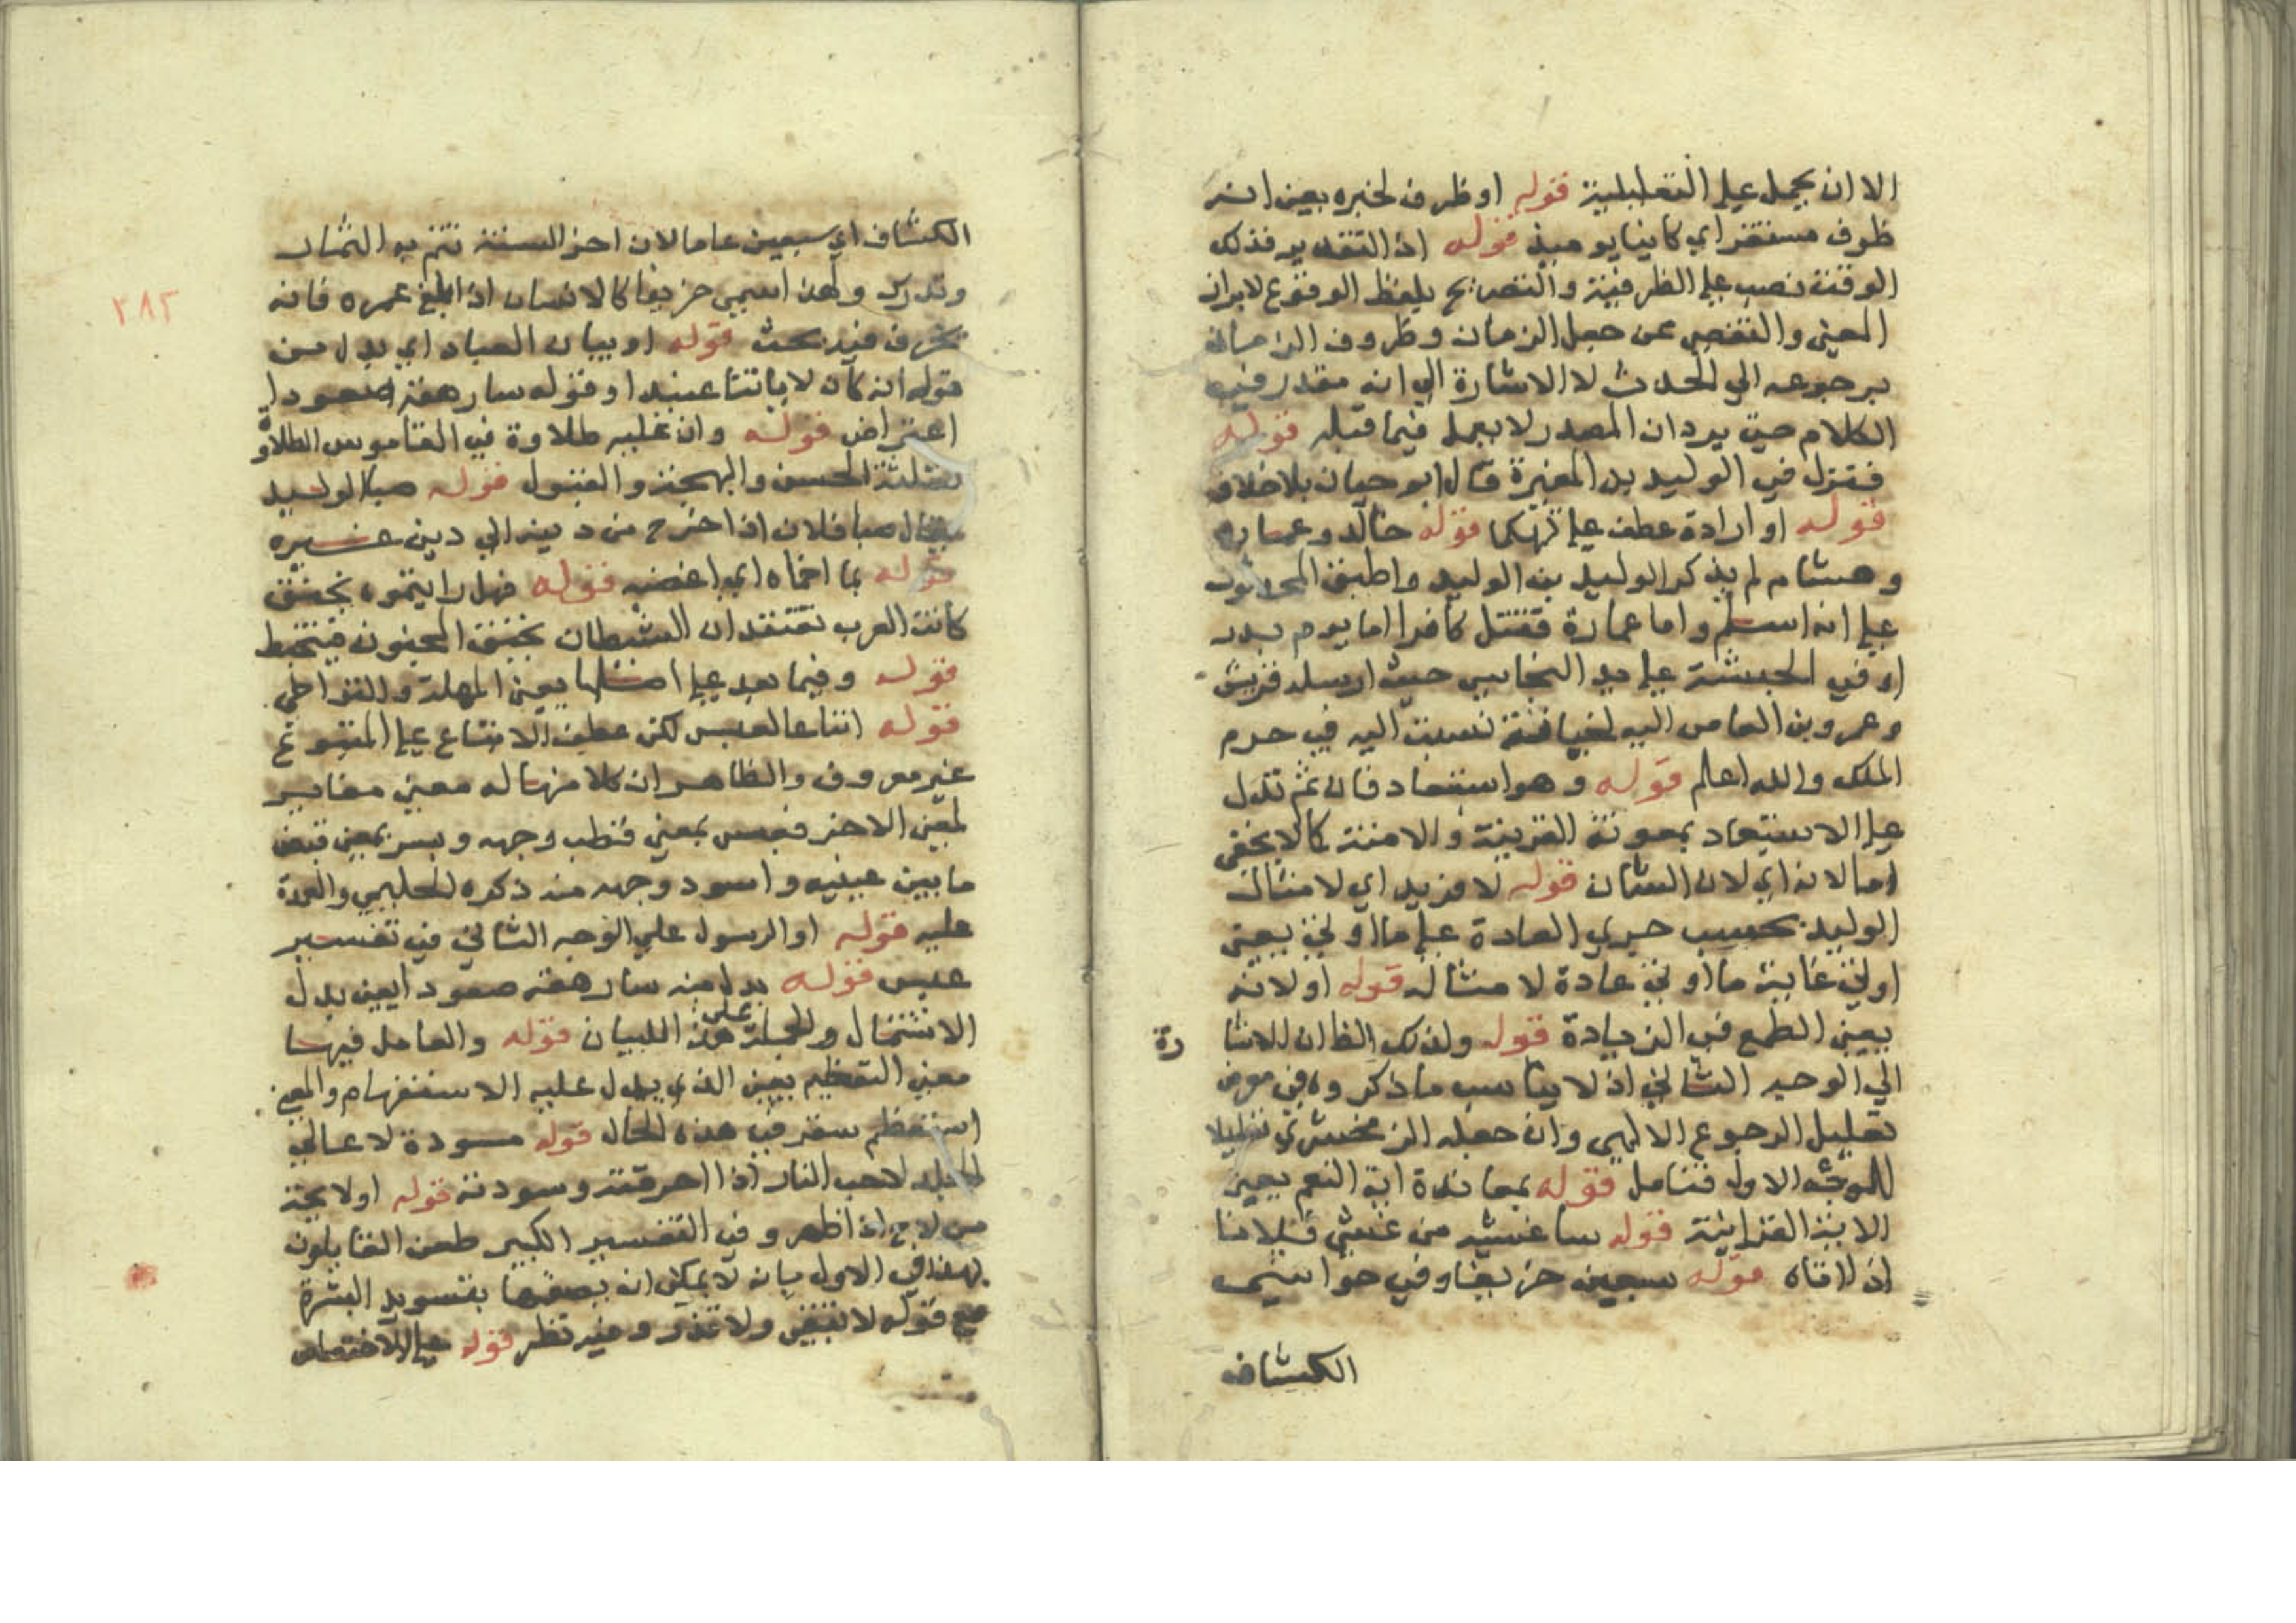 الا ان يحمل على التعليلية قوله او ظرف لخبره يعني انه
ظرف مستقر اي كاينا يوميذ قوله اذ التقدير فذلك
الوقت نصب على الظرفية والتصريح بلفظ الوقوع لابراز
المعنى والتفصي عن جعل الزمان وظروف الزمان
برجوعه الي الحدث لا الاشارة الي انه مقدر فيه
الكلام حتى يرد ان المصدر لا يعمل فيما قبله قوله
فتزل في الوليد بن المغيرة قال ابو حيان بلا خلاف
قوله او ارادة عطف على تهكما قوله خالد وعمارة
وهشام لم يذكر الوليد بن الوليد واطبق المحدثون
على انه اسلم واما عمارة فقتل كافرا اما يوم بدر
او في الحبشة على يد النجاشي حيث ارسله قريش
وعمرو بن العاص اليه لخيانة نسبت اليه في حرم
الملك والله اعلم قوله وهو استبعاد فان ثم تدل
على الاستبعاد بمعونة القرينة والامنة كما لا يخفى
اما لانه اي لان الشان قوله لا مزيد اي لامثال
الوليد بحسب جري العادة على ما اوتي يعني
اوتي غاية ما اوتي عادة لامثاله قوله او لانه
يعني الطمع في الزيادة قوله ولذلك الظان للاشا رة
الي الوجه الثاني اذ لا يناسب ما ذكروه في معرض
تعليل الرجوع الالهي وان جعله الزمخشري تعليلا
للوجه الاول فتامل قوله بمعاندة اية النعم يعني
الاية القرانية قوله ساغشيه من غشي فلانا
اذ لاقاه قوله سبعين خريفا وفي حواشي
الكشاف
الكشاف اي سبعين عاما لان اخر السنة تتم به الثمار
وتدرك ولهذا سمي خريفا كالانسان اذا بلغ عمره فانه
يخرف فيه بحث قوله او بيان العباد اي بدل من
قوله انه كان لاياتنا عنيدا وقوله سارهقه صعودا
اعتراض قوله وان عليه طلاوة في القاموس الطلاوة
مثلثة الحسن والبهجة والقبول قوله صبا الوليد
يقال صبا فلان اذا خرج من دينه الي دين غيره
قوله بما احماه اي اغضبه قوله فهل رايتموه يخنق
كانت العرب تعتقد ان الشيطان يخنق المجنون فيتخبط
قوله وفيما بعد على اصلها يعني المهلة والتراخي
قوله اتباعا لعبس لكن عطف الاتباع على المتبوع
غير معروف والظاهر ان كلا منهما له معنى مغاير
لمعنى الاخر فعبس بمعنى قطب وجهه وبسر بمعنى قبض
ما بين عينيه واسود وجهه منه ذكره الحليمي والعهدة
عليه قوله او الرسول على الوجه الثاني في تفسير
عبس قوله بدل منه سارهقه صعودا يعني بدل
الاشتمال والجملة على هذا للبيان قوله والعامل فيها
معنى التعظيم يعني الذي يدل عليه الاستفهام والمعنى
استعظم سقر في هذه الحال قوله مسودة لا عالي
الجلد لاحب النار اذا احرقته وسودته قوله او لايحة
من لاح اذا ظهر وفي التفسير الكبير طعن القايلون
بهذا في الاول بانه لا يمكن ان يصفها بتسويد البشرة
مع قوله لا تبقي ولا تذر وفيه نظر قوله على الاختصاص
٢٨٢